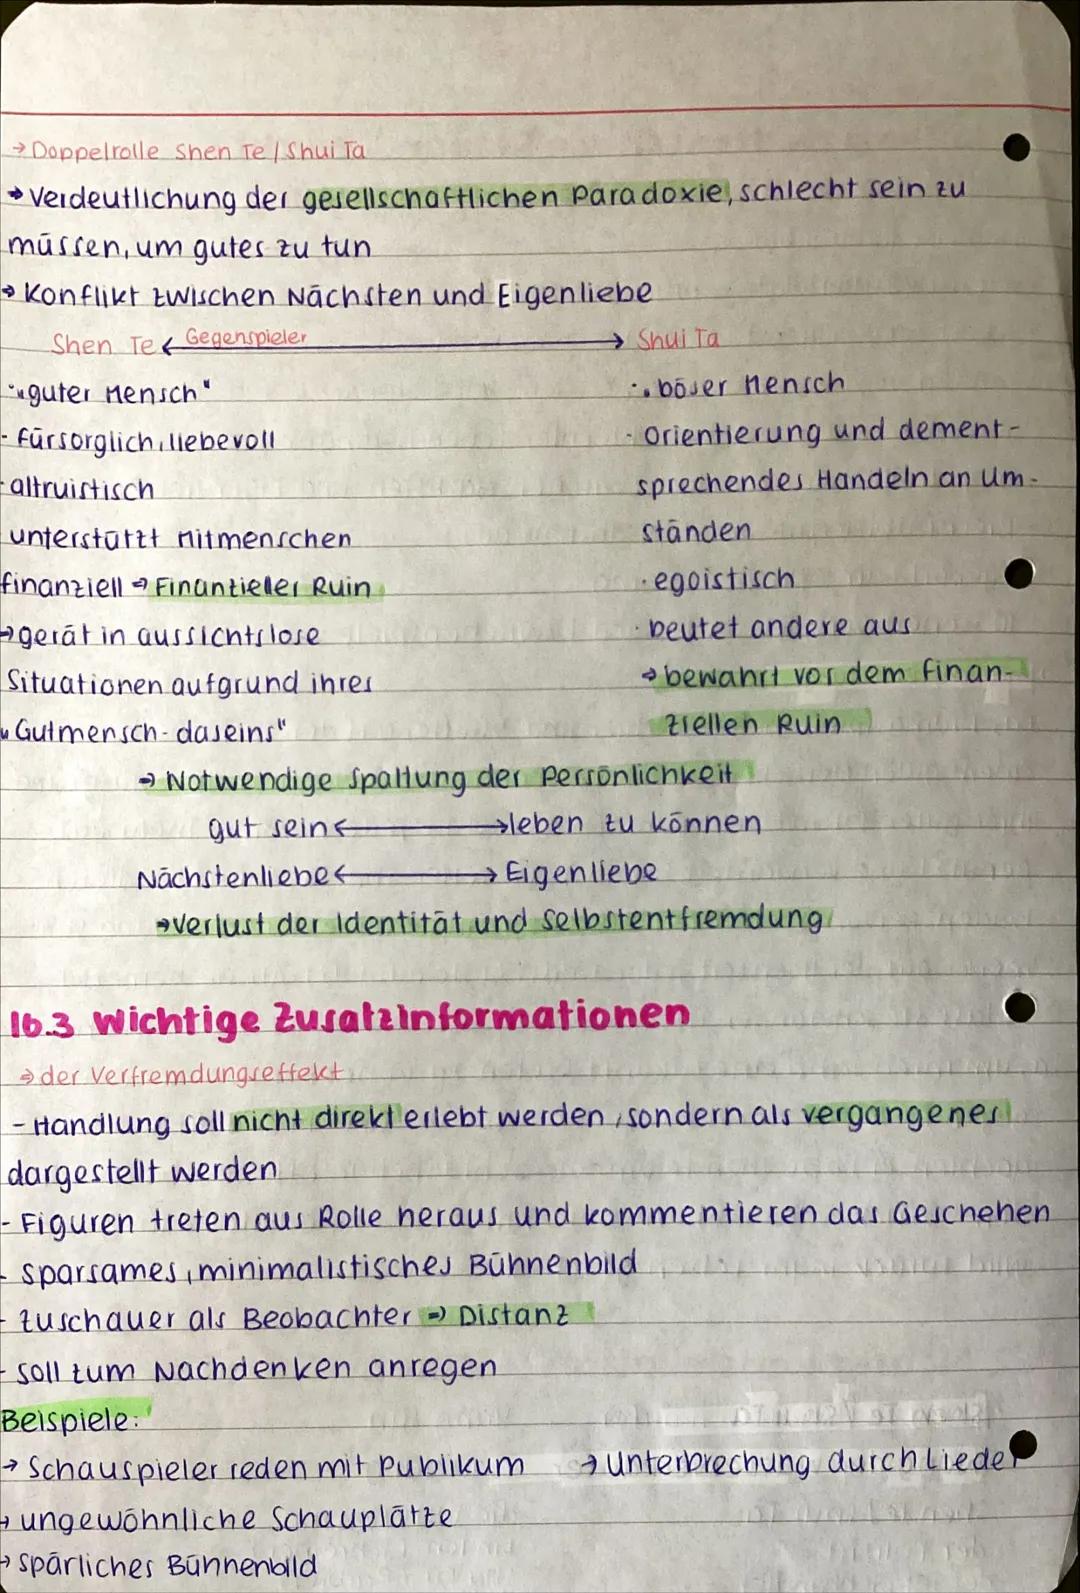 → Doppelrolle Shen Te / Shui Ta
→ Verdeutlichung der gesellschaftlichen Paradoxie, schlecht sein zu
müssen, um gutes zu tun
→ Konflikt zwischen Nächsten und Eigenliebe
Shen Te ← Gegenspieler → Shui Ta
· "guter Mensch"
- fürsorglich, liebevoll
- altruistisch
unterstützt Mitmenschen
finanziell → Finanzieller Ruin
→ gerät in aussichtslose
Situationen aufgrund ihres
"Gutmensch-daseins"
· böser Mensch
· Orientierung und dement-
sprechendes Handeln an Um-
ständen
· egoistisch
· beutet andere aus
→ bewahrt vor dem finan-
ziellen Ruin
→ Notwendige Spaltung der Persönlichkeit
gut sein ↔ leben zu können
Nächstenliebe ↔ Eigenliebe
→ Verlust der Identität und Selbstentfremdung
16.3 Wichtige Zusatzinformationen
→ der Verfremdungseffekt
- Handlung soll nicht direkt erlebt werden, sondern als vergangenes
dargestellt werden
- Figuren treten aus Rolle heraus und kommentieren das Geschehen
- sparsames, minimalistisches Bühnenbild
- Zuschauer als Beobachter → Distanz
- soll zum Nachdenken anregen
Beispiele:
→ Schauspieler reden mit Publikum → Unterbrechung durch Lieder
→ ungewöhnliche Schauplätze
→ spärliches Bühnenbild